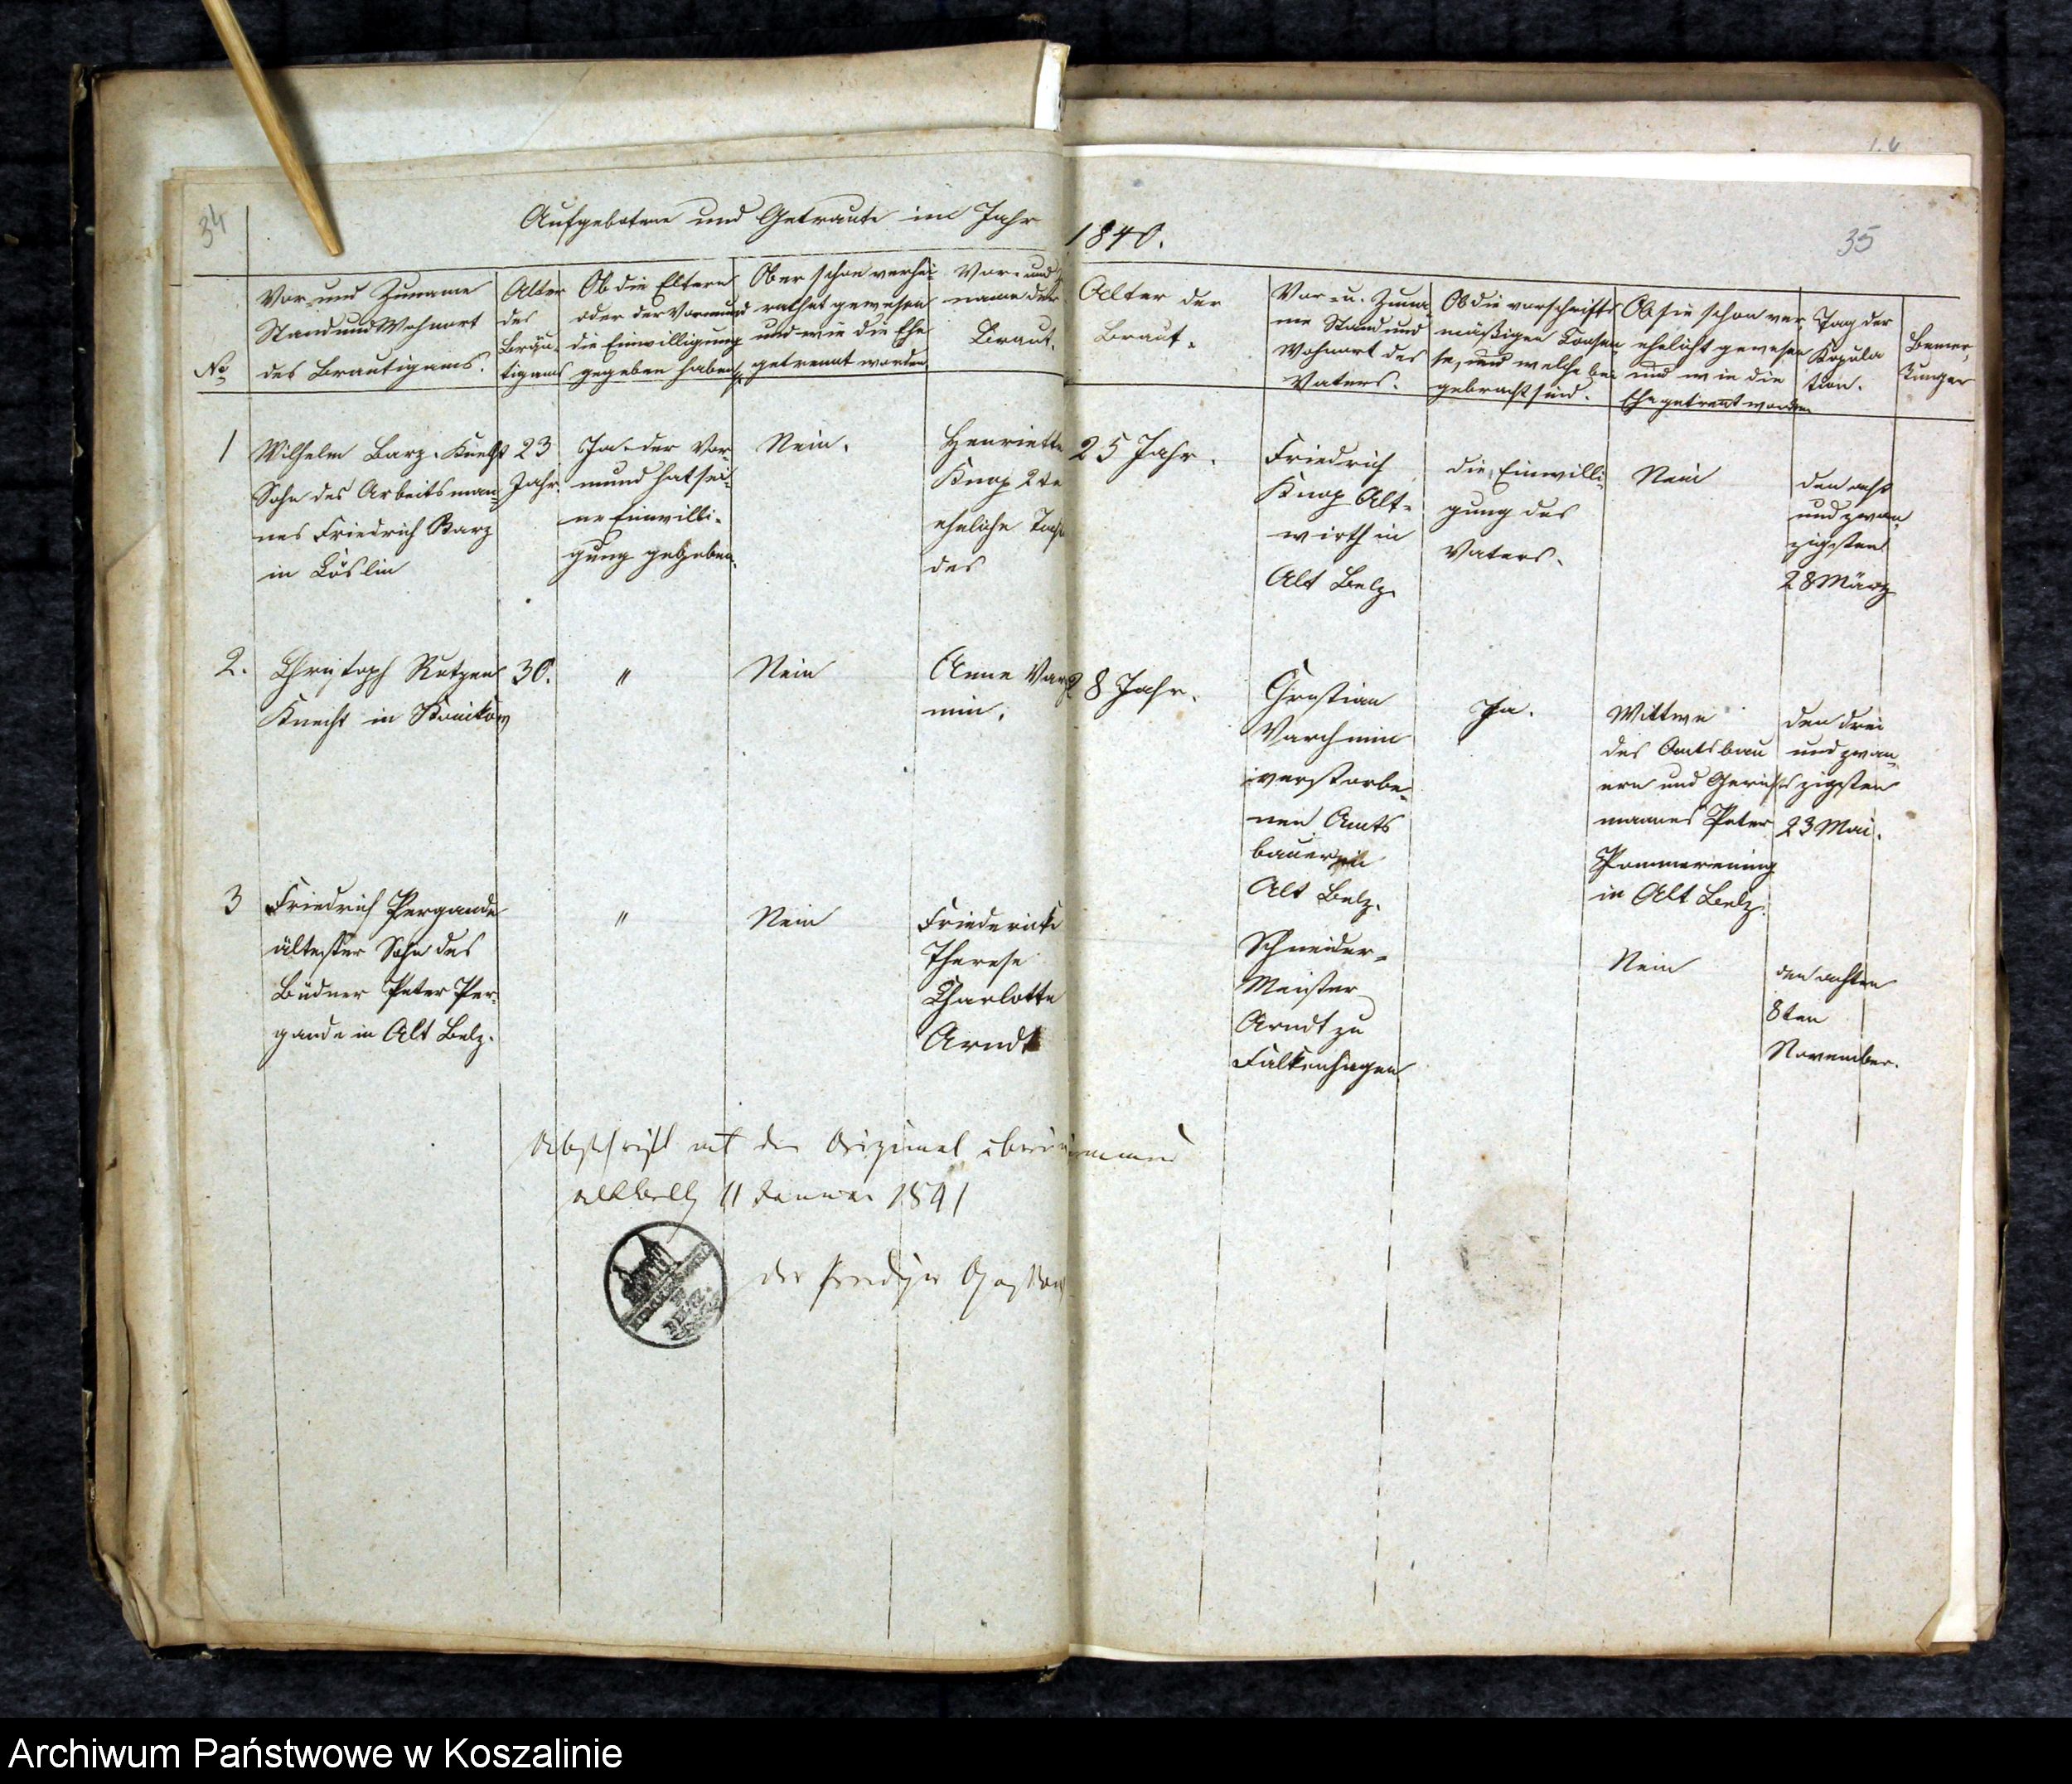 34
Aufgebotene und Getraute im Jahr 1840.
35
No
Vor- und Zuname
Stand und Wohnort
des Bräutigams.
Alter
des
Bräu-
tigams
Ob die Eltern
oder der Vormund
die Einwilligung
gegeben haben
Ob er schon verhei-
rathet gewesen
und wie die Ehe
getrennt worden
Vor- und
name der
Braut.
Alter der
Braut.
Vor- u. Zuna-
me Stand und
Wohnort des
Vaters.
Ob die vorschrifts
mäßigen Consen-
se, und welche bei
gebracht sind.
Ob sie schon ver
ehelicht gewesen
und wie die
Ehe getrennt worden
Tag der
Kopula
tion.
Bemer-
kungen
1
Wilhelm Barz. Knecht
Sohn des Arbeitsman-
nes Friedrich Barz
in Cöslin
23
Jahr.
Ja. der Vor-
mund hat sei-
ne Einwilli-
gung gegeben.
Nein.
Henriette
Knop 2te
eheliche
des
25 Jahr.
Friedrich
Knop Alt-
wirth in
Alt Belz.
die Einwilli-
gung des
Vaters.
Nein
den acht
und zwan
zigsten
28 März
2.
Christoph Retzen
Knecht in Konikow
30.
"
Nein
Anne Varch
min.
28 Jahr.
Christian
Varchmin
verstorbe-
nen Amts
bauer in
Alt Belz.
Ja.
Wittwe
des Amtsbau
ern und Gerichts
mannes Peter
Pommerening
in Alt Belz.
den drei
und zwan-
zigsten
23 Mai.
3
Friedrich Pergande
ältester Sohn des
Büdner Peter Per-
gande in Alt Belz.
"
Nein
Friedericke
Therese
Charlotte
Arndt
Schneider-
Meister
Arndt zu
Falkenhagen
Nein
den achten
8ten
November.
Abschrift mit dem Original
Altbelz 11 Januar 1841
der Prediger
Archiwum Państwowe w Koszalinie